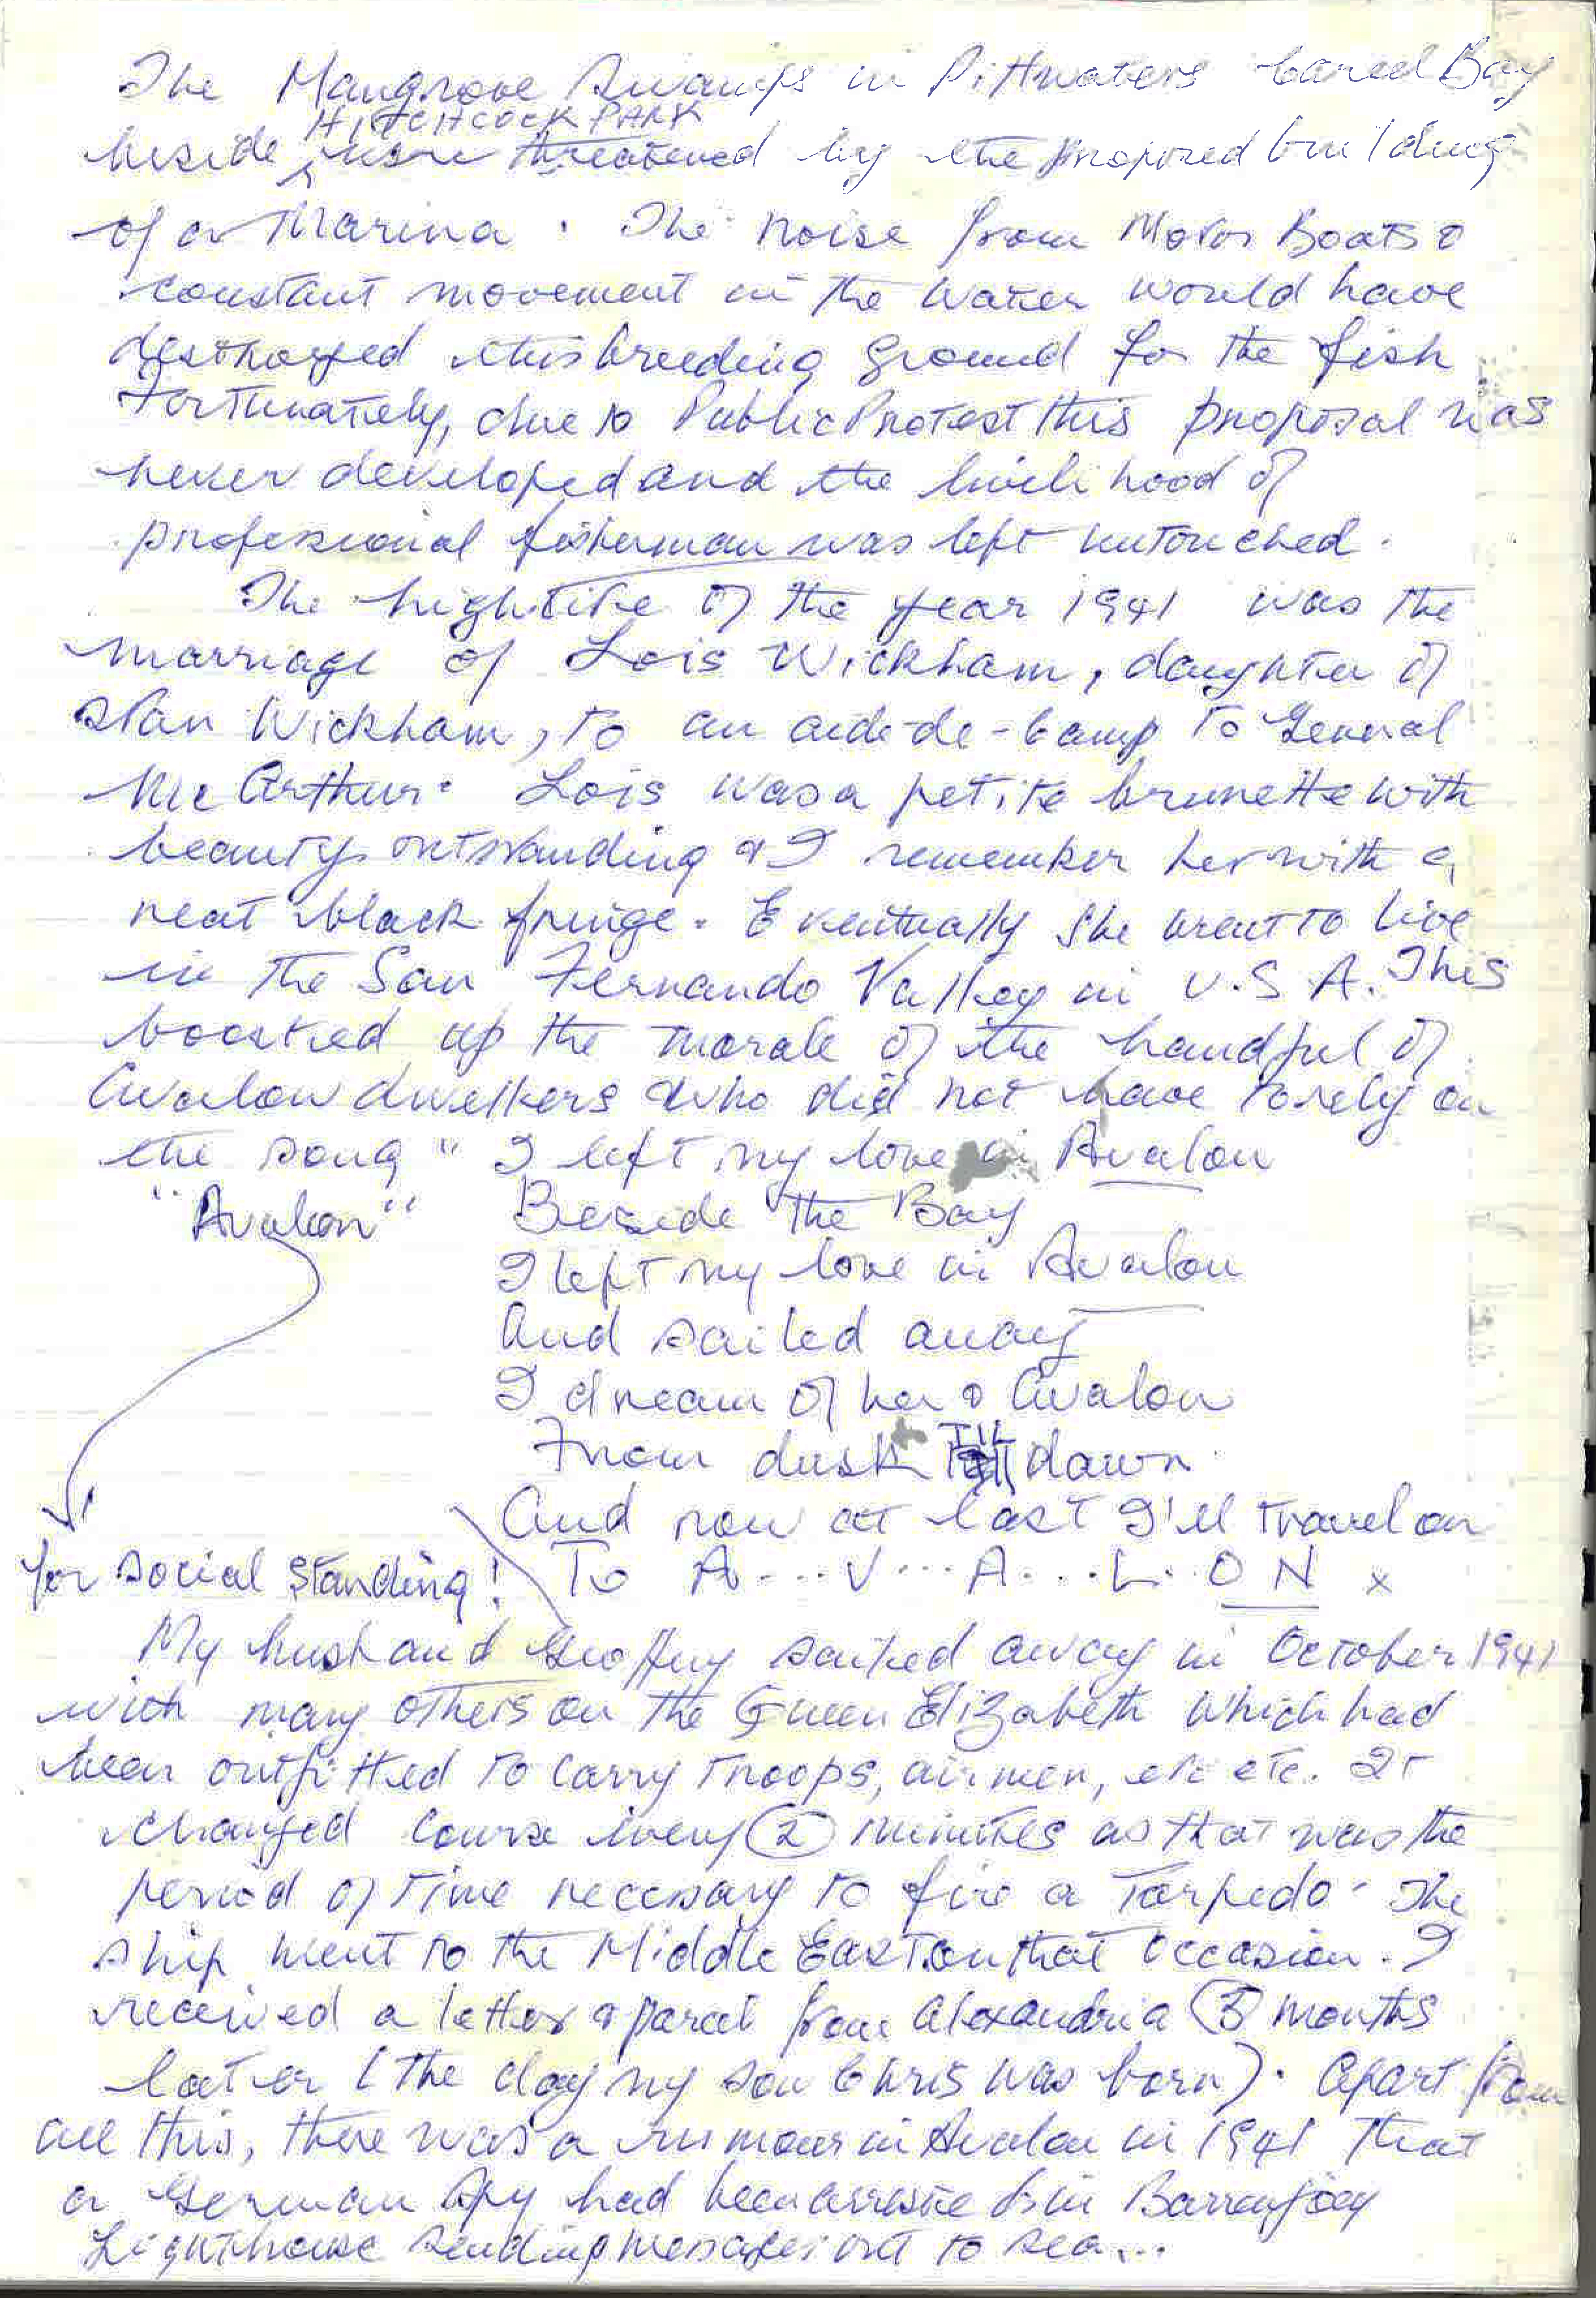 The Mangrove Swamps in Pittwaters Careel Bay
HITCHCOCK PARK
beside were threatened by the proposed building
of a Marina. The noise from Motor Boats &
constant movement in the water would have
destroyed this breeding ground for the fish
Fortunately, due to Public Protest this proposal was
never developed and the livelihood of
professional fisherman was left untouched.
The highlite of the year 1941 was the
marriage of Lois Wickham, daughter of
Stan Wickham, to an aide-de-camp to General
McArthur. Lois was a petite brunette with
beauty outstanding & I remember her with a
neat black fringe. Eventually she went to live
in the San Fernando Valley in U.S.A. This
boosted up the morale of the handful of
Avalon dwellers who did not have to rely on
the song " I left my love in Avalon
"Avalon" Beside the Bay
I left my love in Avalon
And sailed away
I dream of her & Avalon
From dusk TIL dawn
And now at last I'll travel on
for social standing! To A...V...A...L..O N x
My husband Geoffrey sailed away in October 1941
with many others on the Queen Elizabeth which had
been outfitted to carry troops, airmen, etc etc. It
changed course every 2 minutes as that was the
period of time necessary to fire a Torpedo. The
ship went to the Middle East on that occasion. I
received a letter & parcel from Alexandria months
later (the day my son Chris was born). Apart from
all this, there was a rumour in Avalon in 1941 that
a German Spy had been arrested in Barrenjoey
Lighthouse sending messages out to sea...